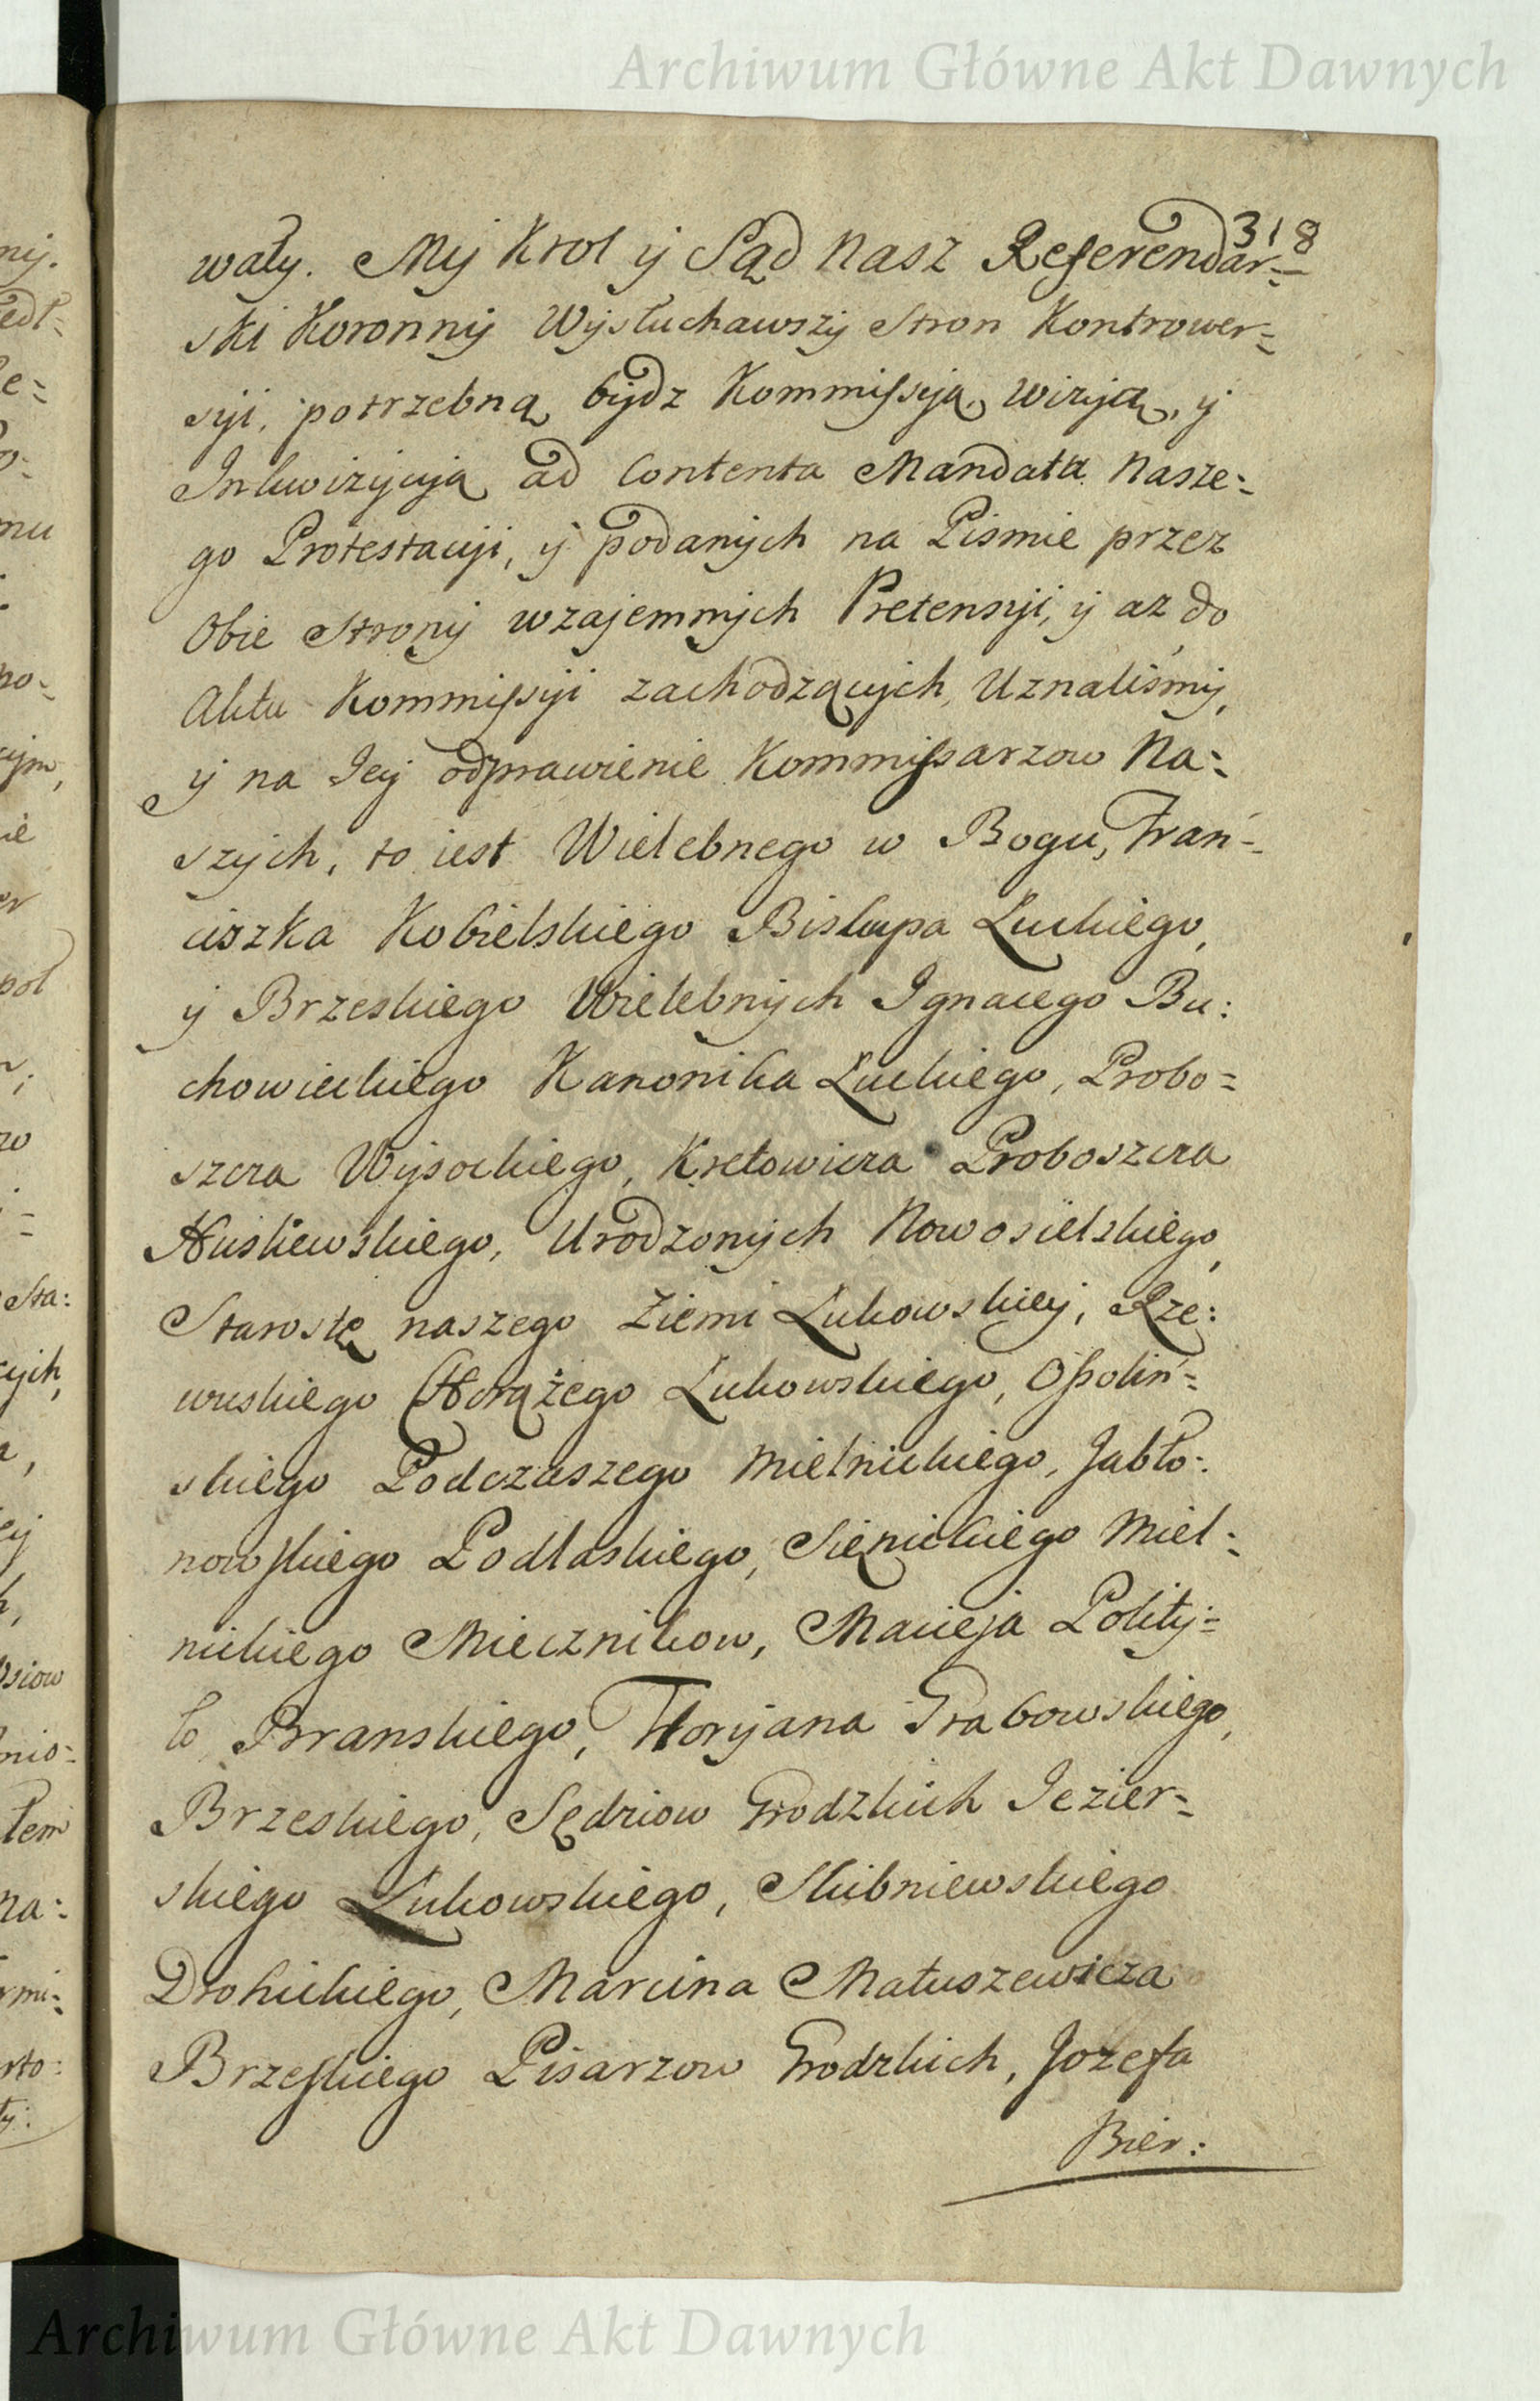 Archiwum Główne Akt Dawnych
318
wały. My Krol y Sąd Nasz Referendar=
ski Koronny Wysłuchawszy Stron Kontrower=
syi, potrzebną bydz Kommissyją, wizyją, y
Inkwizycyją ad Contenta Mandatu Nasze=
go Protestacyi, y podanych na Pismie przez
Obie Strony wzajemnych Pretensyi, y aż do
Aktu Kommissyi zachodzących, Uznaliśmy,
y na Jey odprawienie Kommissarzow Na=
szych, to iest Wielebnego w Bogu, Fran=
ciszka Kobielskiego Biskupa Łuckiego,
y Brzeskiego Wielebnych Ignacego Bu:
chowieckiego Kanonika Łuckiego, Probo=
szcza Wysockiego, Kretowicza Proboszcza
Huskiewskiego, Urodzonych Nowosielskiego,
Starostę naszego Ziemi Łukowskiey, Rze:
wuskiego Chorążego Łukowskiego, Ossoliń=
skiego Podczaszego Mielnickiego, Jabło:
nowskiego Podlaskiego, Sienickiego Miel=
nickiego Miecznikow, Macieja Polity=
ło, Branskiego, Floryjana Grabowskiego,
Brzeskiego, Sędziow Grodzkich Jezier=
skiego Łukowskiego, Skibniewskiego
Drohickiego, Marcina Matuszewicza
Brzeskiego Pisarzow Grodzkich, Jozefa
Bier:
Archiwum Główne Akt Dawnych